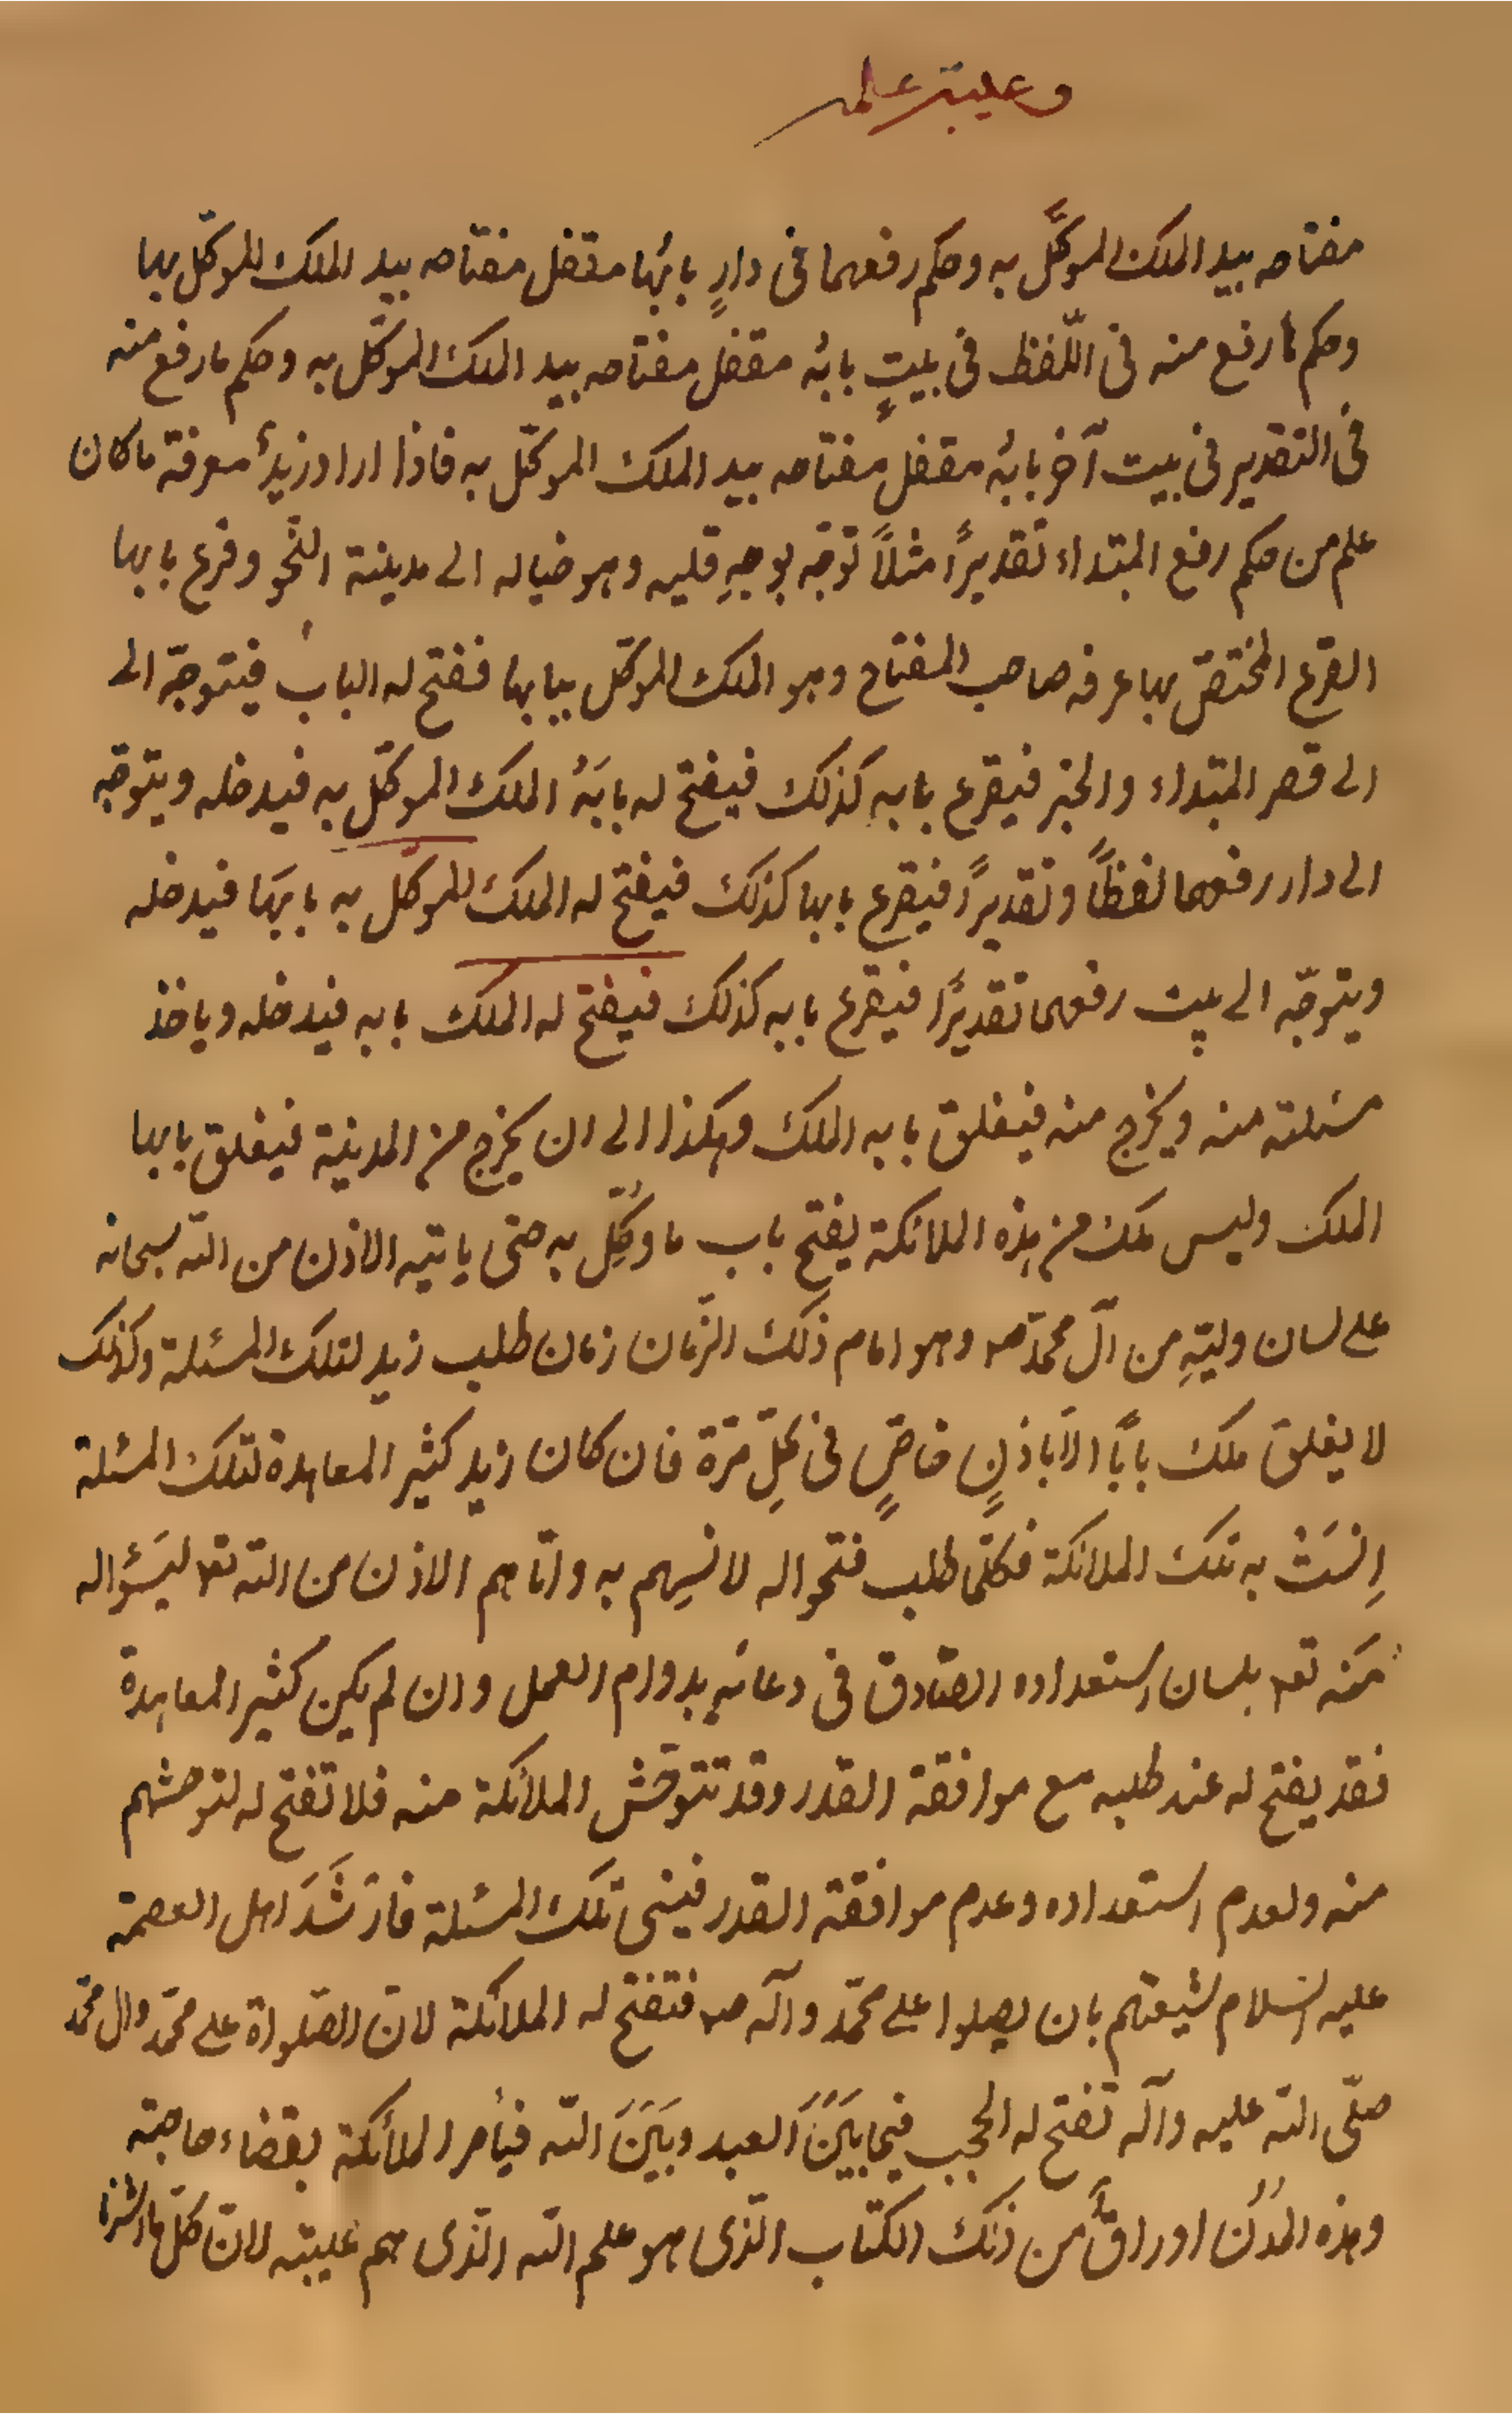 وعيبة علمه
مفتاحه بيد الملك الموكَّل به وحكم رفعهما فى دارٍ بابُها مقفل مفتاحه بيد الملك الموكّل بها
وحكم ما رفع منه فى اللّفظ فى بيتٍ بابُه مقفل مفتاحه بيد الملك الموكّل به وحكم ما رفع منه
فى التقدير فى بيت آخر بابُه مقفل مفتاحه بيد الملك الموكّل به فاذا اراد زيدٌ معرفة ما كان
علم من حكم رفع المبتداء تقديرًا مثلاً توجّه بوجهِ قلبه وهو خياله الى مدينة النّحو وقرع بابها
القرع المختصّ بها عرفه صاحب المفتاح وهو الملك الموكّل ببابها ففتح له الباب فيتوجّه الى
الى قصر المبتداء والخبر فيقرع بابه كذلك فيفتح له بابَهُ الملك الموكّل به فيدخله ويتوجّه
الى دار رفعهما لفظاً وتقديرًا فيقرع بابها كذلك فيفتح له الملك الموكّل به بابها فيدخله
ويتوجّه الى بيت رفعهما تقديرًا فيقرع بابه كذلك فيفتح له الملك بابه فيدخله وياخذ
مسئلته منه ويخرج منه فيغلق بابه الملك وهكذا الى ان يخرج من المدينة فيغلق بابها
الملك وليس ملك من هذه الملائكة يفتح باب ما وُكِّل به حتى ياتيه الاذن من الله سبحانه
على لسان وليّهِ من آل محمّد ص وهو امام ذلك الزّمان زمان طلب زيد لتلك المسئلة وكذلك
لا يغلق ملك بابًا الّا باذنٍ خاصٍّ فى كلّ مرّة فان كان زيد كثير المعاهدة لتلك المسئلة
اِنسَتْ به تلك الملائكة فكلّما طلب فتحوا له لانسِهم به واتاهم الاذن من الله تع لسَؤاله
مَنه تع بلسان استعداده الصّادق فى دعائهِ بدوام العمل وان لم يكن كثير المعاهدة
فقد يفتح له عند طلبه مع موافقة القدر وقد تتوحّش الملائكة منه فلا تفتح له لتوحشهم
منه ولعدم استعداده وعدم موافقة القدر فينسى تلك المسئلة فارْشَدَ اهل العصمة
عليه السّلام لشيعتهم بان يصلوا على محمّد وآله ص فتفتح له الملائكة لانّ الصّلواة على محمّد وال محمّد
صلّى الله عليه وآله تفتح له الحجب فيما بَيَنَ العبد وبَيَنَ الله فيأمر الملأئكة بقضاء حاجته
وهذه المُدُن اوراقٌ من ذلك الكتاب الّذى هو علم الله الّذى هم عيبته لانّ كلّ ما اشرنا